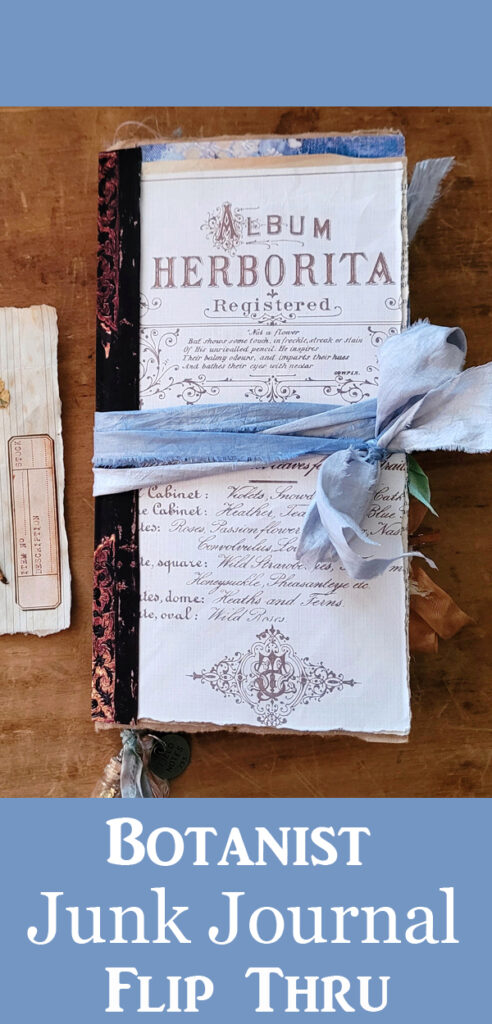 ALBUM
HERBORITA
Registered.
"Not a flower
But shows some touch, in freckle, streak or stain
Of His unrivalled pencil. He inspires
Their balmy odours, and imparts their hues
And bathes their eyes with nectar
COWPER.
leaves for
Cabinet: Violets, Snowd
Cabinet: Heather, Tea Blue
Roses, Passionflower
Convolvulus,
square: Wild Strawberries,
Honeysuckle, Pheasanteye etc.
dome: Heaths and Ferns.
oval: Wild Roses.
ITEM NO. STOCK
DESCRIPTION
BOTANIST
Junk Journal
FLIP THRU